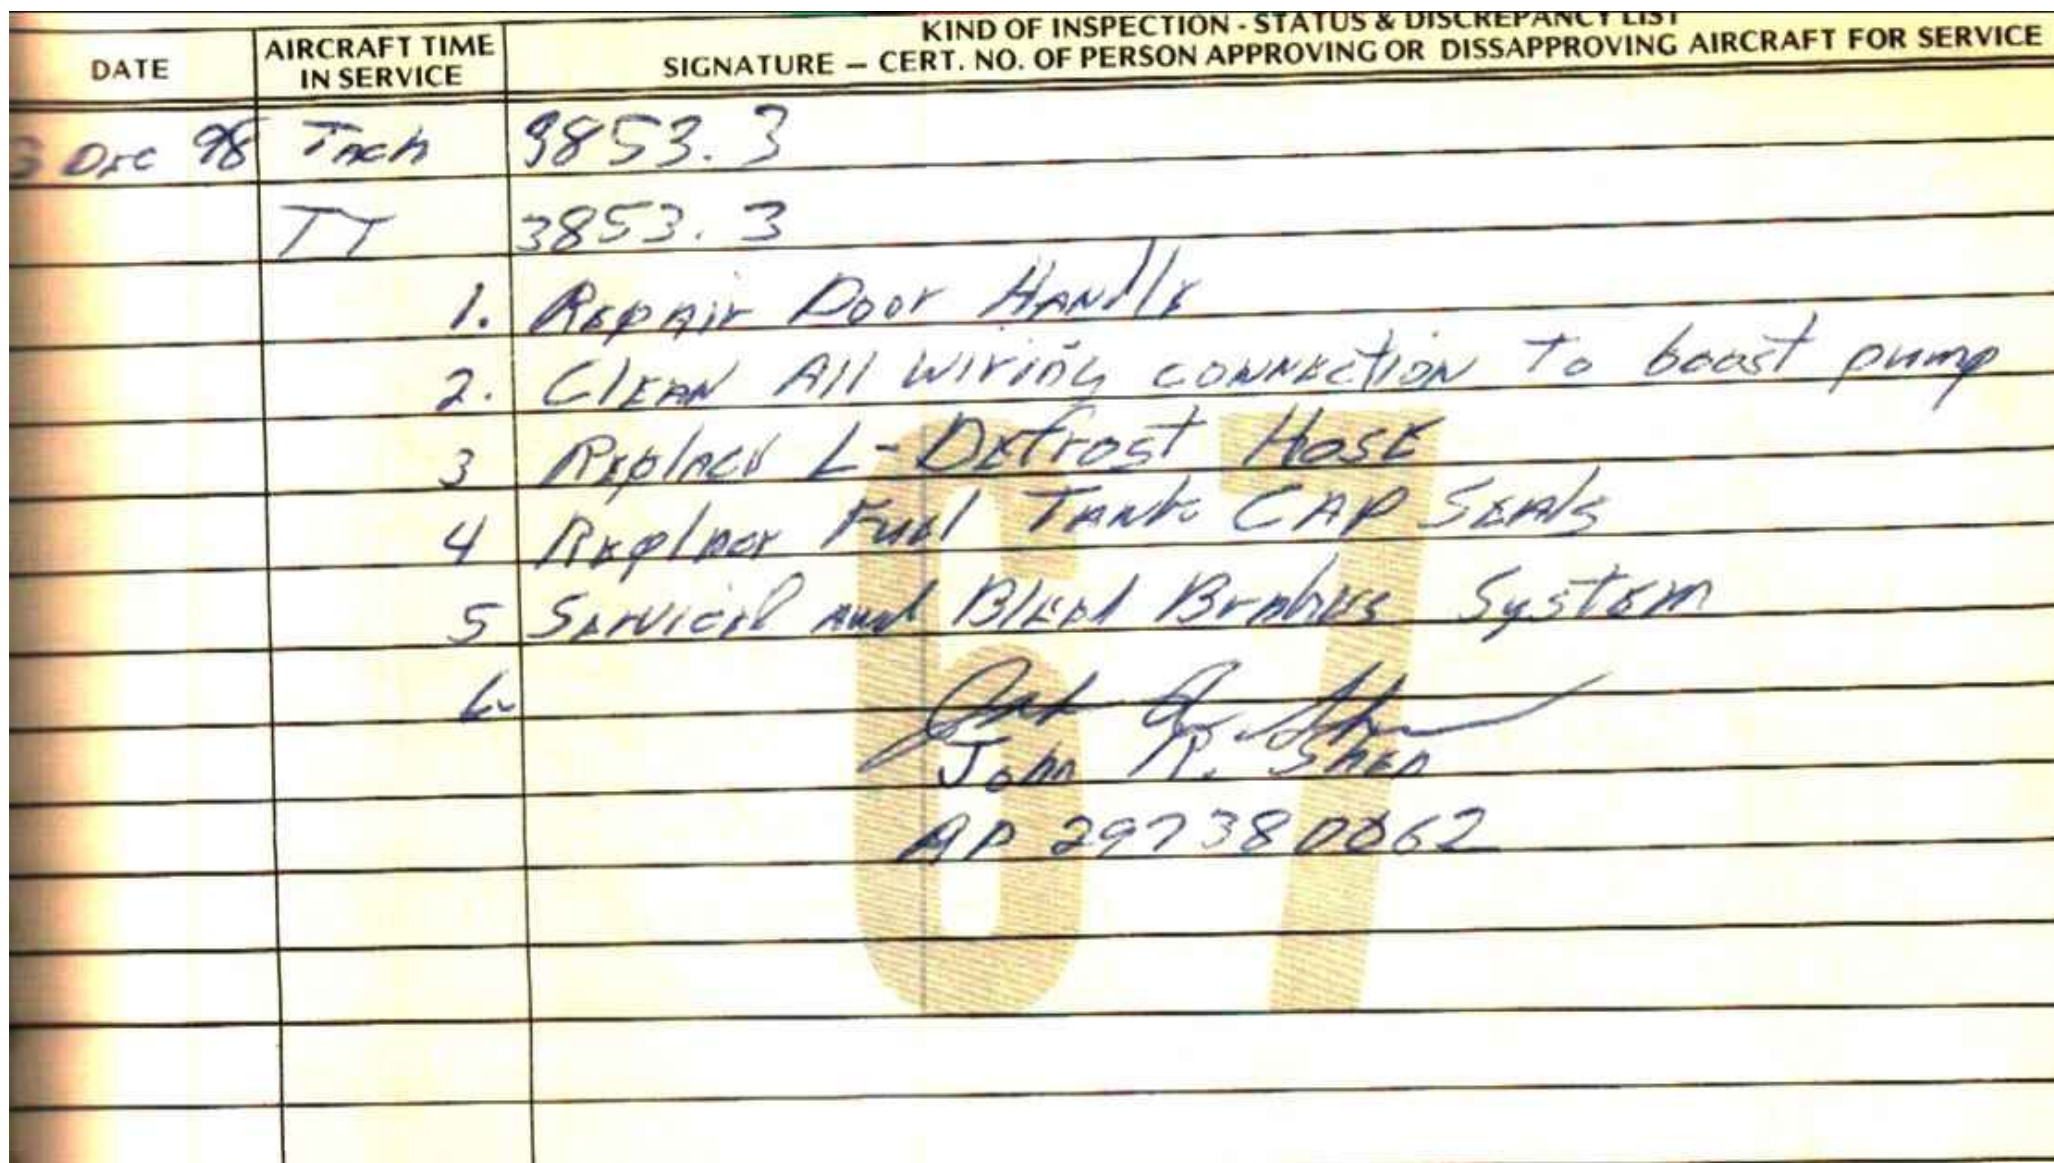 KIND OF INSPECTION - STATUS & DISCREPANCY LIST
DATE AIRCRAFT TIME IN SERVICE SIGNATURE — CERT. NO. OF PERSON APPROVING OR DISSAPPROVING AIRCRAFT FOR SERVICE
3 Dec 98 Tach 9853.3
TT 3853.3
1. Repair Door Handle
2. Clean All wiring connection To boost pump
3 Replace L-Defrost Hose
4 Replace Fuel Tank CAP Seals
5 Serviced and Bleed Brakes System
6
John R. Shea
AP 297380062
67